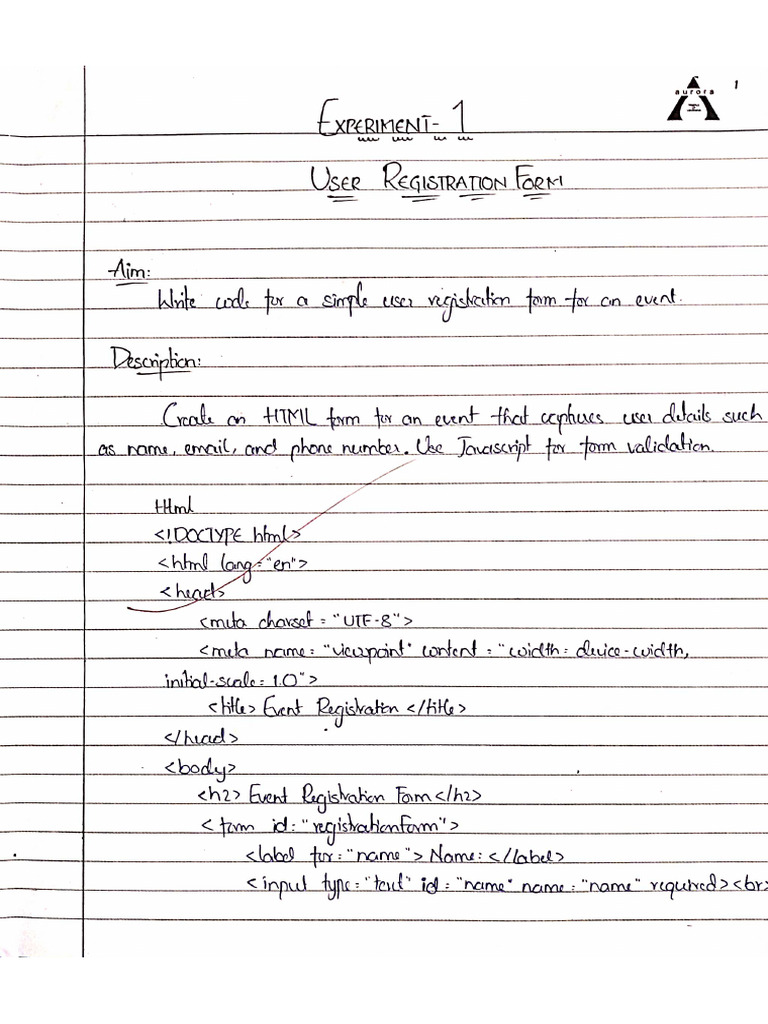 aurora
1
EXPERIMENT-1
USER REGISTRATION FORM
Aim:
Write code for a simple user registration form for an event.
Description:
Create an HTML form for an event that captures user details such
as name, email, and phone number. Use Javascript for form validation.
Html
<!DOCTYPE html>
<html lang="en">
<head>
<meta charset="UTF-8">
<meta name="viewpoint" content="width=device-width,
initial-scale=1.0">
<title> Event Registration </title>
</head>
<body>
<h2> Event Registration Form</h2>
<form id="registrationForm">
<label for="name"> Name:</label>
<input type="text" id="name" name="name" required><br>